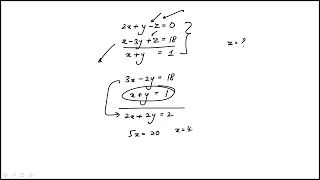 2x + y - z = 0
x - 3y + z = 18
x + y = 1
x = ?
3x - 2y = 18
x + y = 1
2x + 2y = 2
5x = 20 x = 4